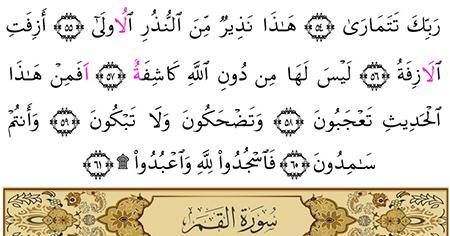 رَبِّكَ تَتَمَارَىٰ ﴿٥٤﴾ هَـٰذَا نَذِيرٌ مِّنَ ٱلنُّذُرِ ٱلُاولَىٰٓ ﴿٥٥﴾ أَزِفَتِ
ٱلَازِفَةُ ﴿٥٦﴾ لَيْسَ لَهَا مِن دُونِ ٱللَّهِ كَاشِفَةٌ ﴿٥٧﴾ اَفَمِنْ هَـٰذَا
ٱلْحَدِيثِ تَعْجَبُونَ ﴿٥٨﴾ وَتَضْحَكُونَ وَلَا تَبْكُونَ ﴿٥٩﴾ وَأَنتُمْ
سَـٰمِدُونَ ﴿٦٠﴾ فَٱسْجُدُوا۟ لِلَّهِ وَٱعْبُدُوا۟ ۩ ﴿٦١﴾
سُورَةُ القَمَرِ